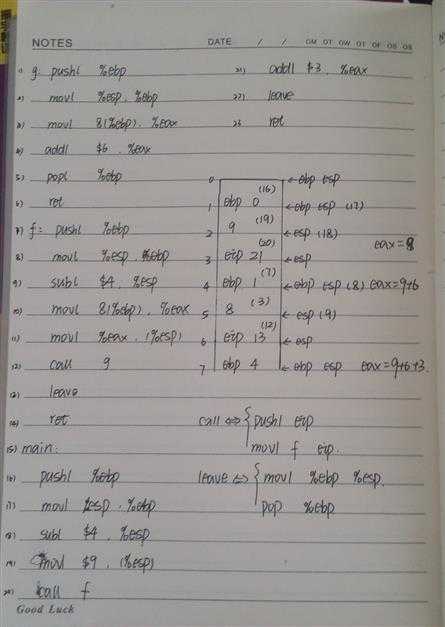 NOTES DATE / / OM OT OW OT OF OS OS
1) g: pushl %ebp
2) movl %esp, %ebp
3) movl 8(%ebp), %eax
4) addl $6, %eax
5) popl %ebp
6) ret
7) f: pushl %ebp
8) movl %esp %ebp
9) subl $4, %esp
10) movl 8(%ebp), %eax
11) movl %eax, (%esp)
12) call g
13) leave
14) ret
15) main:
16) pushl %ebp
17) movl %esp, %ebp
18) subl $4, %esp
19) movl $9, (%esp)
20) call f
21) addl $3, %eax
22) leave
23 ret
0 ← ebp esp
1 ebp 0 (16) ← ebp esp (17)
2 9 (19) ← esp (18)
eax = 8
3 eip 21 (20) ← esp
4 ebp 1 (7) ← ebp esp (8) eax=9+6
5 8 (3) ← esp (9)
6 eip 13 (12) ← esp
7 ebp 4 ← ebp esp eax=9+6+3
call ⇔ { pushl eip
movl f eip.
leave ⇔ { movl %ebp %esp
pop %ebp
Good Luck